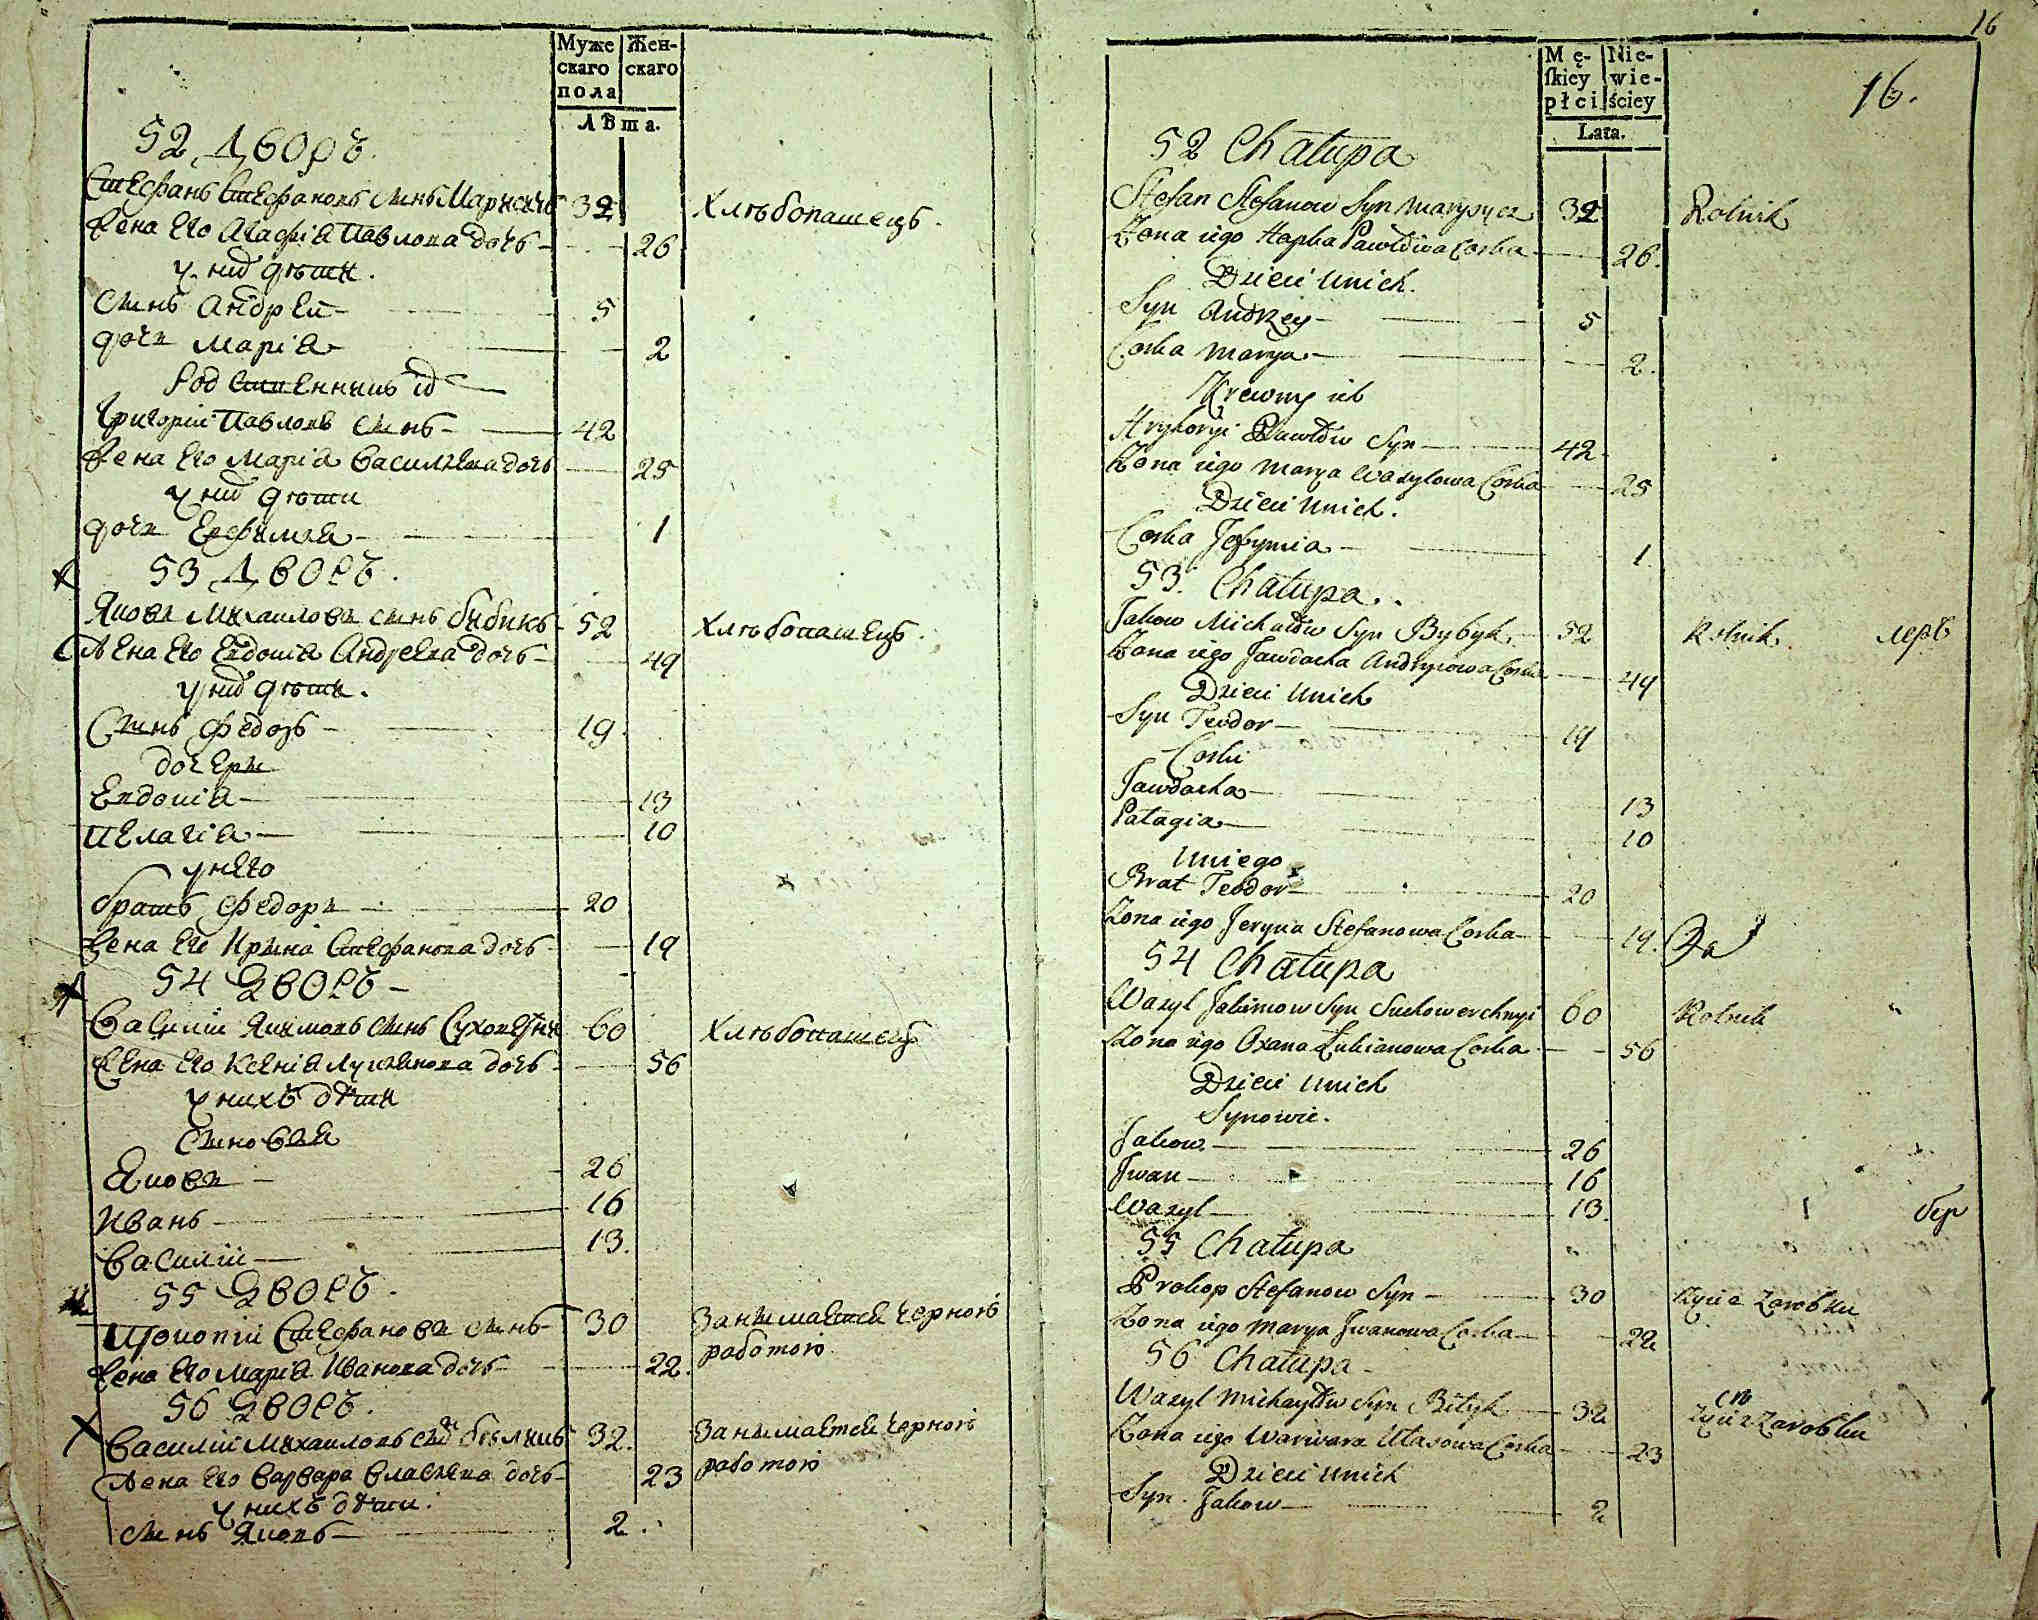 Муже
скаго
пола
Жен-
скаго
Лѣта.
52 Дворъ.
Стефанъ Стефановъ сынъ 32 Хлѣбопашецъ.
Жена его Агафія Павлова дочь 26
у нид дѣти.
Сынъ Андрей 5
дочь Марія 2
Григорій Павловъ сынъ 42
Жена его Марія Васильева дочь 25
у нид дѣти
дочь Евфимія 1
53 Дворъ.
Яковъ Михаиловъ сынъ Бибикъ 52 Хлѣбопашецъ.
Жена его Евдокія Андреева дочь 49
у нид дѣти.
Сынъ Федоръ 19.
дочери
Евдокія 13
Пелагія 10
у него
братъ Федоръ 20
Жена его Ирина Стефанова дочь 19
54 Дворъ
Василій Якимовъ сынъ 60 Хлѣбопашецъ
Жена его Ксенія Лукянова дочь 56
у нихъ дѣти
Сыновья
Яковъ 26
Иванъ 16
Василій 13.
55 Дворъ.
Прокопій Стефановъ сынъ 30 Занимается черною
работою.
Жена его Марія Иванова дочь 22.
56 Дворъ.
Василій Михаиловъ 32. Занимается черною
работою
Жена его Варвара Власьева дочь 23
у нихъ дѣти.
сынъ Яковъ 2.
16
16.
Mę-
ſkiey
płci
Nie-
wie-
ściey
Lata.
52 Chałupa
Stefan Stefanow Syn 32 Rolnik
Zona iego Hapka Pawłowa Corka 26.
Dzieci unich.
Syn Andrzey 5
Corka Marya 2.
Krewny ich
Hryhoryi Pawłów Syn 42
Zona iego Marya Wasylowa Corka 25
Dzieci unich.
Corka Jefymia 1.
53. Chałupa.
Jakow Michałów Syn Bybyk 52 Rolnik
Zona iego Jawdocha Andryiowa Corka 49
Dzieci unich
Syn Teodor 19
Corki
Jawdocha 13
Pałagia 10
Uniego
Brat Teodor 20
Zona iego Jeryna Stefanowa Corka 19.
54 Chałupa
Wasyl Jakimow Syn Suchowerchnyi 60 Rolnik
Zona iego Oxana Łukianowa Corka 56
Dzieci unich
Synowie.
Jakow 26
Iwan 16
Wasyl 13.
55 Chałupa
Prokop Stefanow Syn 30 Zyie z Zarobku
Zona iego Marya Iwanowa Corka 22
56 Chałupa
Wasyl Michayłów Syn Bityk 32 Zyie z Zarobku
Zona iego Warwara Ułasowa Corka 23
Dzieci unich
Syn Jakow 2